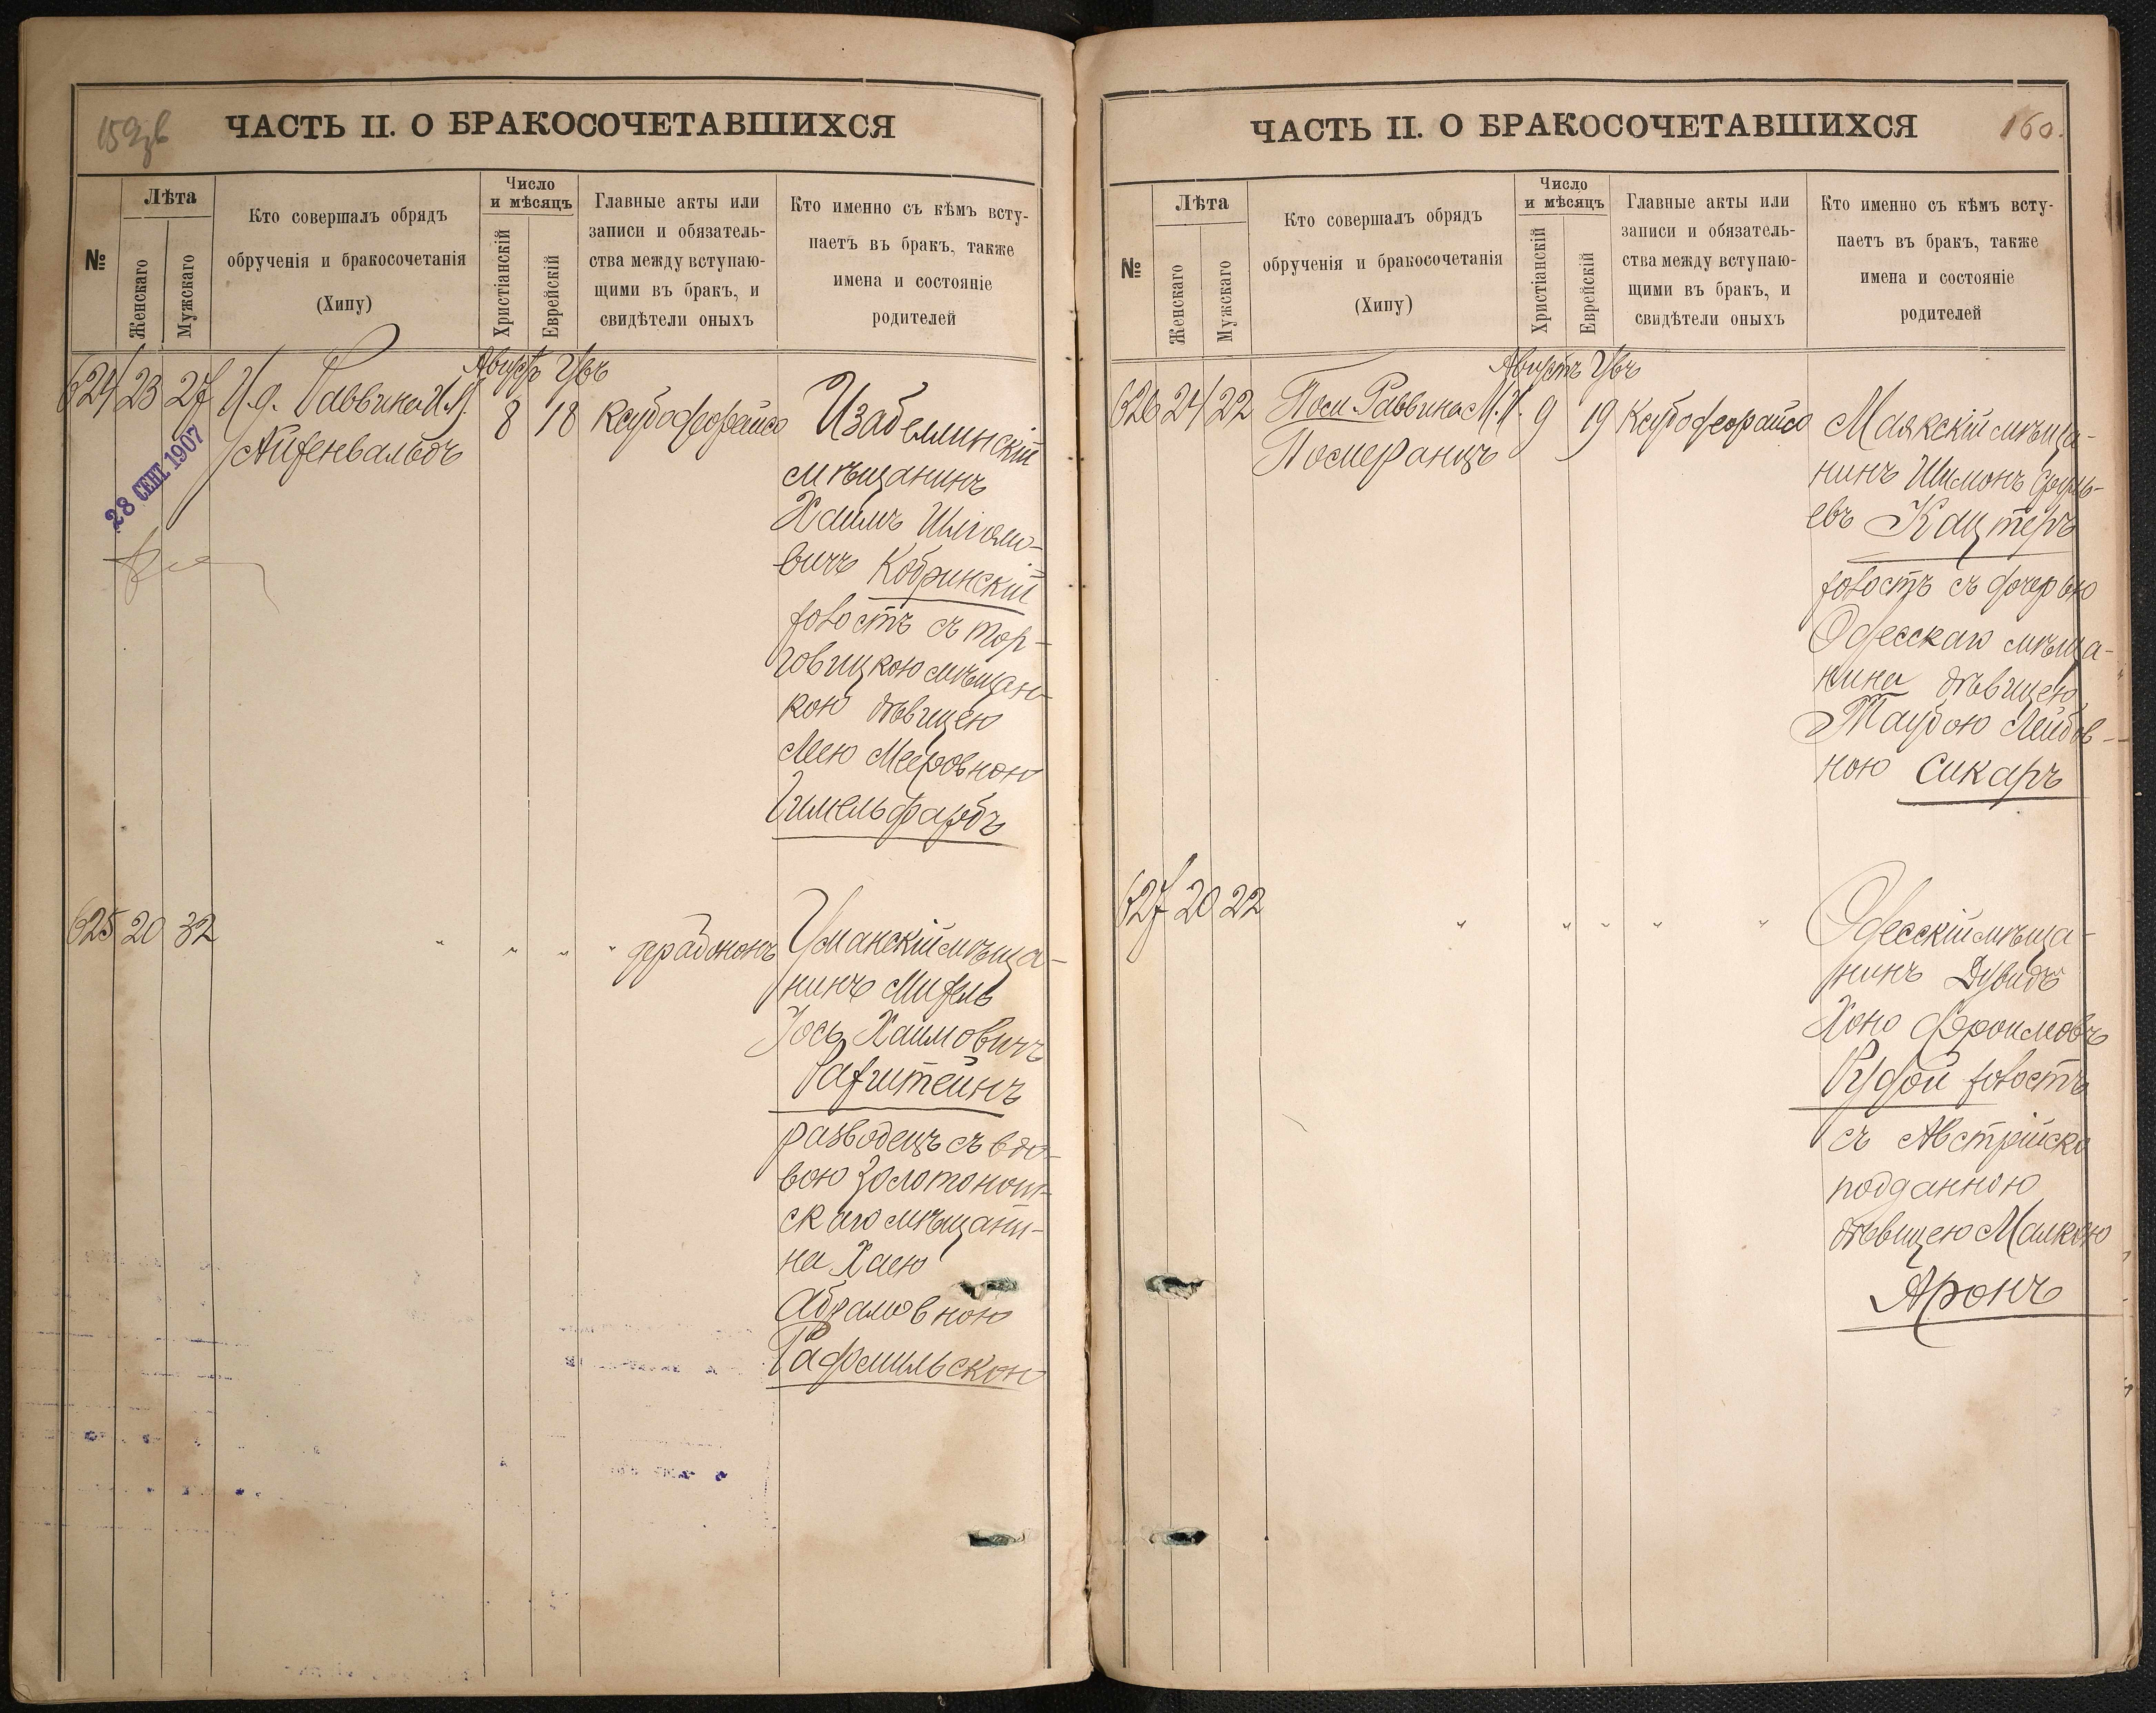 159об
ЧАСТЬ II. О БРАКОСОЧЕТАВШИХСЯ
№
Лѣта
Женскаго
Мужскаго
Кто совершалъ обрядъ
обрученія и бракосочетанія
(Хипу)
Число
и мѣсяцъ
Христіанскій
Еврейскій
Главные акты или
записи и обязатель-
ства между вступаю-
щими въ бракъ, и
свидѣтели оныхъ
Кто именно съ кѣмъ всту-
паетъ въ бракъ, также
имена и состояніе
родителей
Августъ Увъ
624 23 27 И.д. Раввина И.А.
Айзенвальдъ
8 18
28 СЕНТ. 1907
Изабеллинскій
мѣщанинъ
Хаимъ Шліомо-
вичъ Кобринскій
холостъ съ тор-
говицкою мѣщан-
кою дѣвицею
Леею Мееровною
Гимельфарбъ
625 20 32 " " " "
Уманскій мѣща-
нинъ Михель
Іось Хаимовичъ
Рафштейнъ
разводецъ съ вдо-
вою Золотонош-
скаго мѣщани-
на Хаею
Абрамовною
Радомыльскою
ЧАСТЬ II. О БРАКОСОЧЕТАВШИХСЯ
160.
№
Лѣта
Женскаго
Мужскаго
Кто совершалъ обрядъ
обрученія и бракосочетанія
(Хипу)
Число
и мѣсяцъ
Христіанскій
Еврейскій
Главные акты или
записи и обязатель-
ства между вступаю-
щими въ бракъ, и
свидѣтели оныхъ
Кто именно съ кѣмъ всту-
паетъ въ бракъ, также
имена и состояніе
родителей
Августъ Увъ
626 24 22 Пом. Раввина М.И.
Померанцъ
9 19
Маякскій мѣща-
нинъ Шимонъ
евъ Кацтеръ
холостъ съ дочерью
Одесскаго мѣща-
нина дѣвицею
Таубою Лейбов-
ною Сикаръ
627 20 22 " " " " "
Одесскій мѣща-
нинъ Дувидъ
Хоно Фроимовъ
Рудой холостъ
съ Австрійско
подданною
дѣвицею Малкою
Аронъ